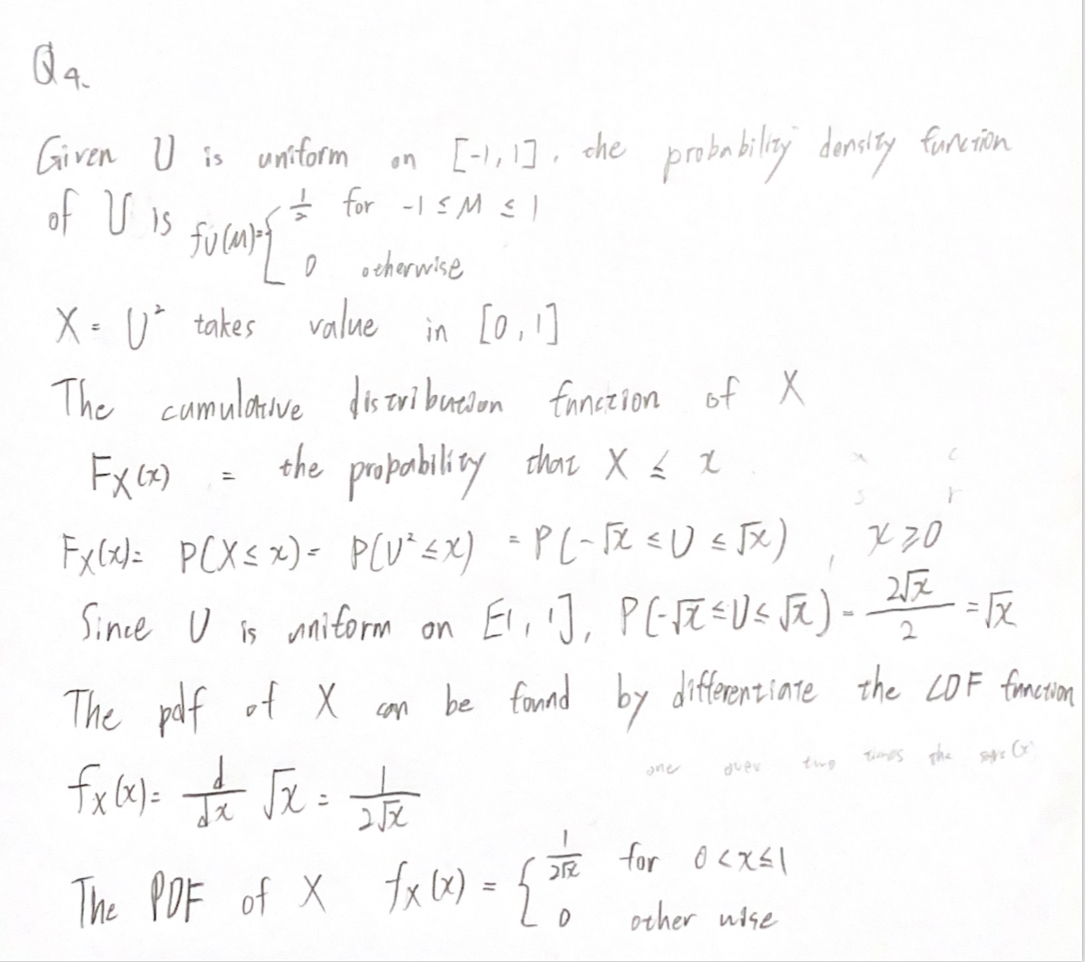 Q4.
Given U is uniform on [-1, 1], the probability density function
of U is fU(u)={ 1/2 for -1 ≤ u ≤ 1
0 otherwise
X = U² takes value in [0, 1]
The cumulative distribution function of X
FX(x) = the probability that X ≤ x
FX(x)= P(X≤x)= P(U²≤x) = P(-√x ≤ U ≤ √x) , x≥0
Since U is uniform on [-1, 1], P(-√x ≤ U ≤ √x) = 2√x/2 = √x
The pdf of X can be found by differentiate the CDF function
one over two times the
fx(x)= d/dx √x = 1/2√x
The PDF of X fx(x) = { 1/2√x for 0<x≤1
0 other wise